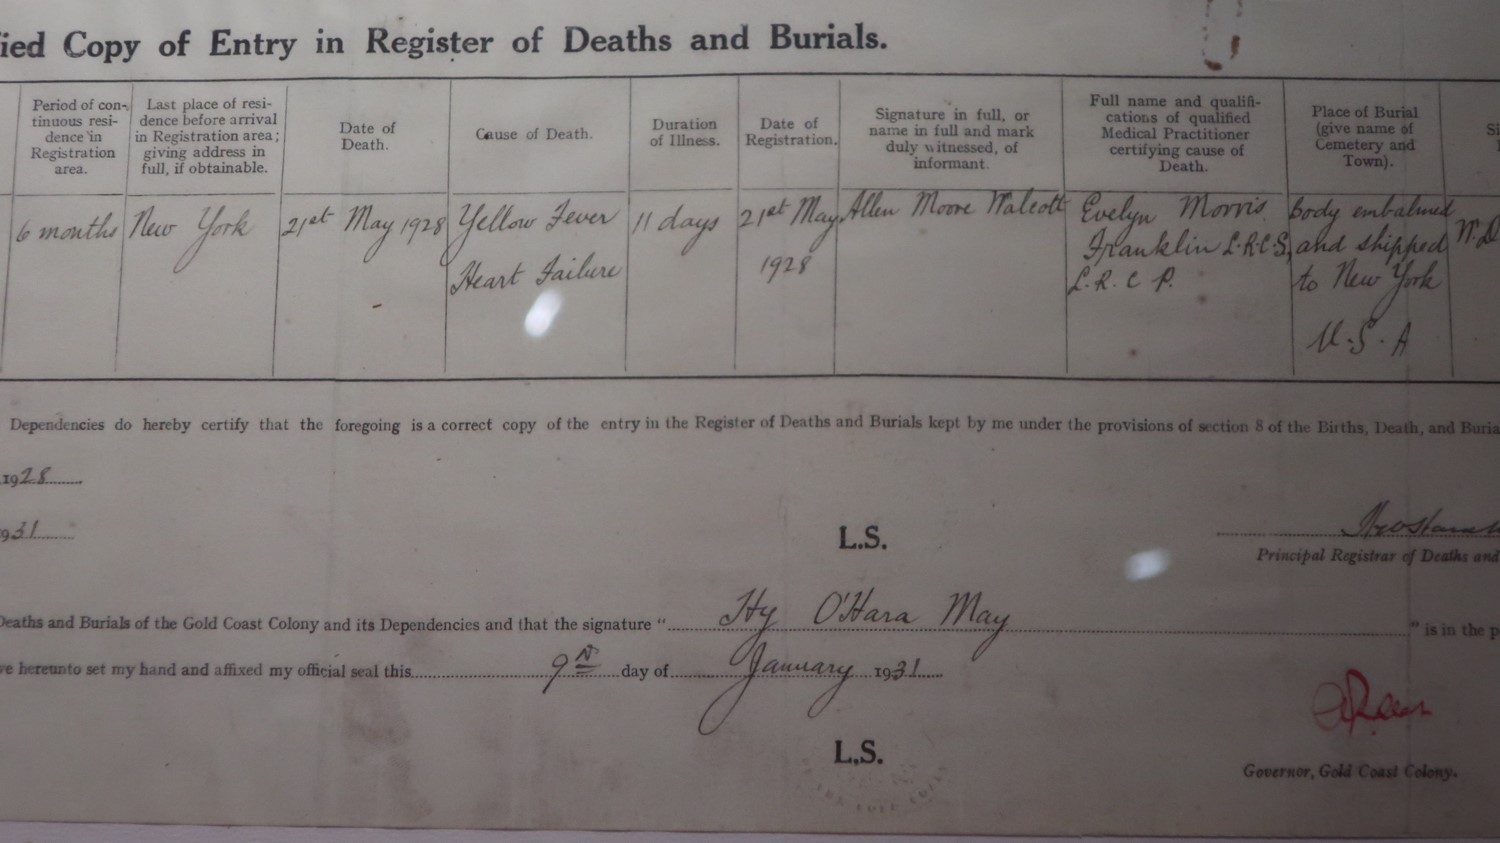 ied Copy of Entry in Register of Deaths and Burials.
Period of con-
tinuous resi-
dence in
Registration
area.
Last place of resi-
dence before arrival
in Registration area;
giving address in
full, if obtainable.
Date of
Death.
Cause of Death.
Duration
of Illness.
Date of
Registration.
Signature in full, or
name in full and mark
duly witnessed, of
informant.
Full name and qualifi-
cations of qualified
Medical Practitioner
certifying cause of
Death.
Place of Burial
(give name of
Cemetery and
Town).
Si
6 months
New York
21st May 1928
Yellow Fever
Heart Failure
11 days
21st May
1928
Allen Moore Walcott
Evelyn Morris
Franklin L.R.C.S,
L.R.C.P.
body embalmed
and shipped
to New York
U.S.A
Dependencies do hereby certify that the foregoing is a correct copy of the entry in the Register of Deaths and Burials kept by me under the provisions of section 8 of the Births, Death, and Buria
1928
931
L.S.
Principal Registrar of Deaths and
Deaths and Burials of the Gold Coast Colony and its Dependencies and that the signature "Hy O'Hara May" is in the p
ve hereunto set my hand and affixed my official seal this 9th day of January 1931
L.S.
Governor, Gold Coast Colony.